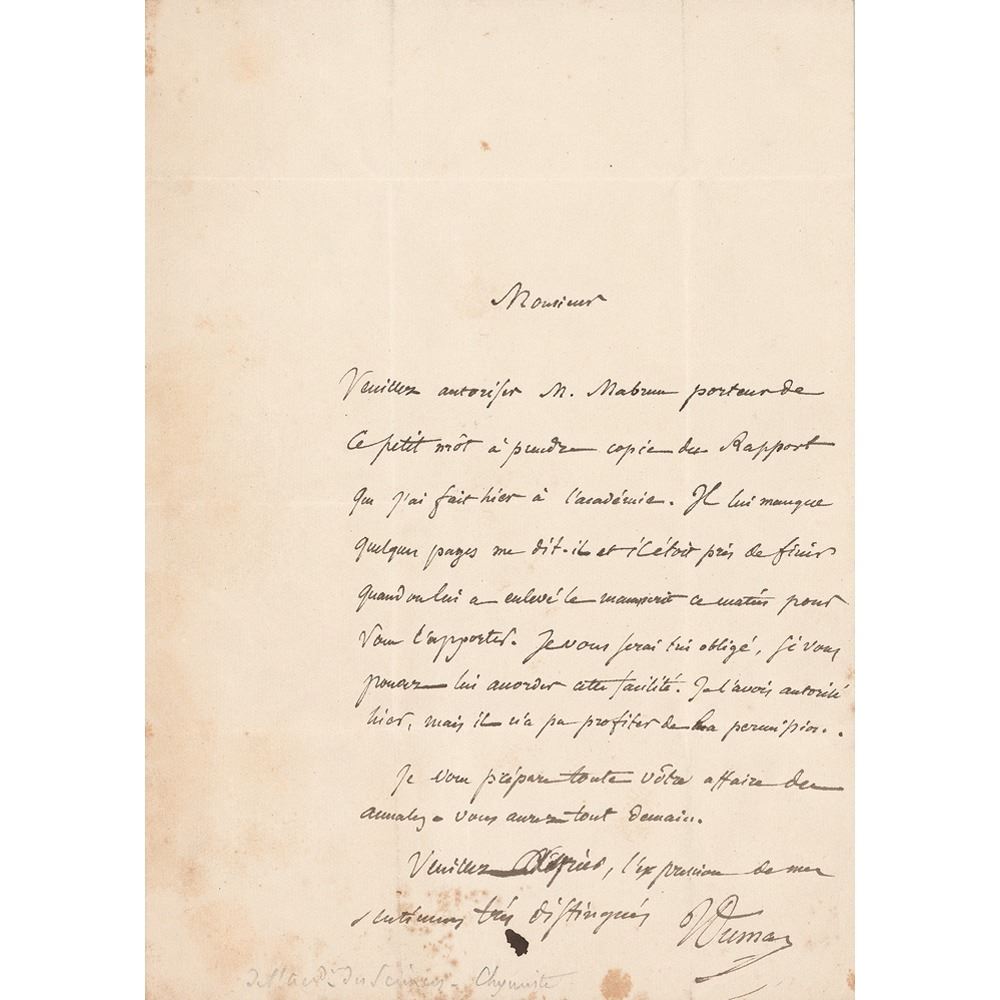 Monsieur
Veuillez autoriser M. Mabrun porteur de
ce petit môt à prendre copie du Rapport
que j'ai fait hier à l'académie. Il lui manque
quelques pages me dit-il et il étoit près de finir
quand on lui a enlevé le manuscrit ce matin pour
vous l'apporter. Je vous serai très obligé, si vous
pouvez lui accorder cette facilité. Je l'avois autorisé
hier, mais il n'a pu profiter de la permission.
Je vous prépare toute vôtre affaire des
annales. vous aurez tout demain.
Veuillez agréer, l'expression de mes
sentimens très distingués
Dumas
de l'Acad. des Sciences - Chymiste